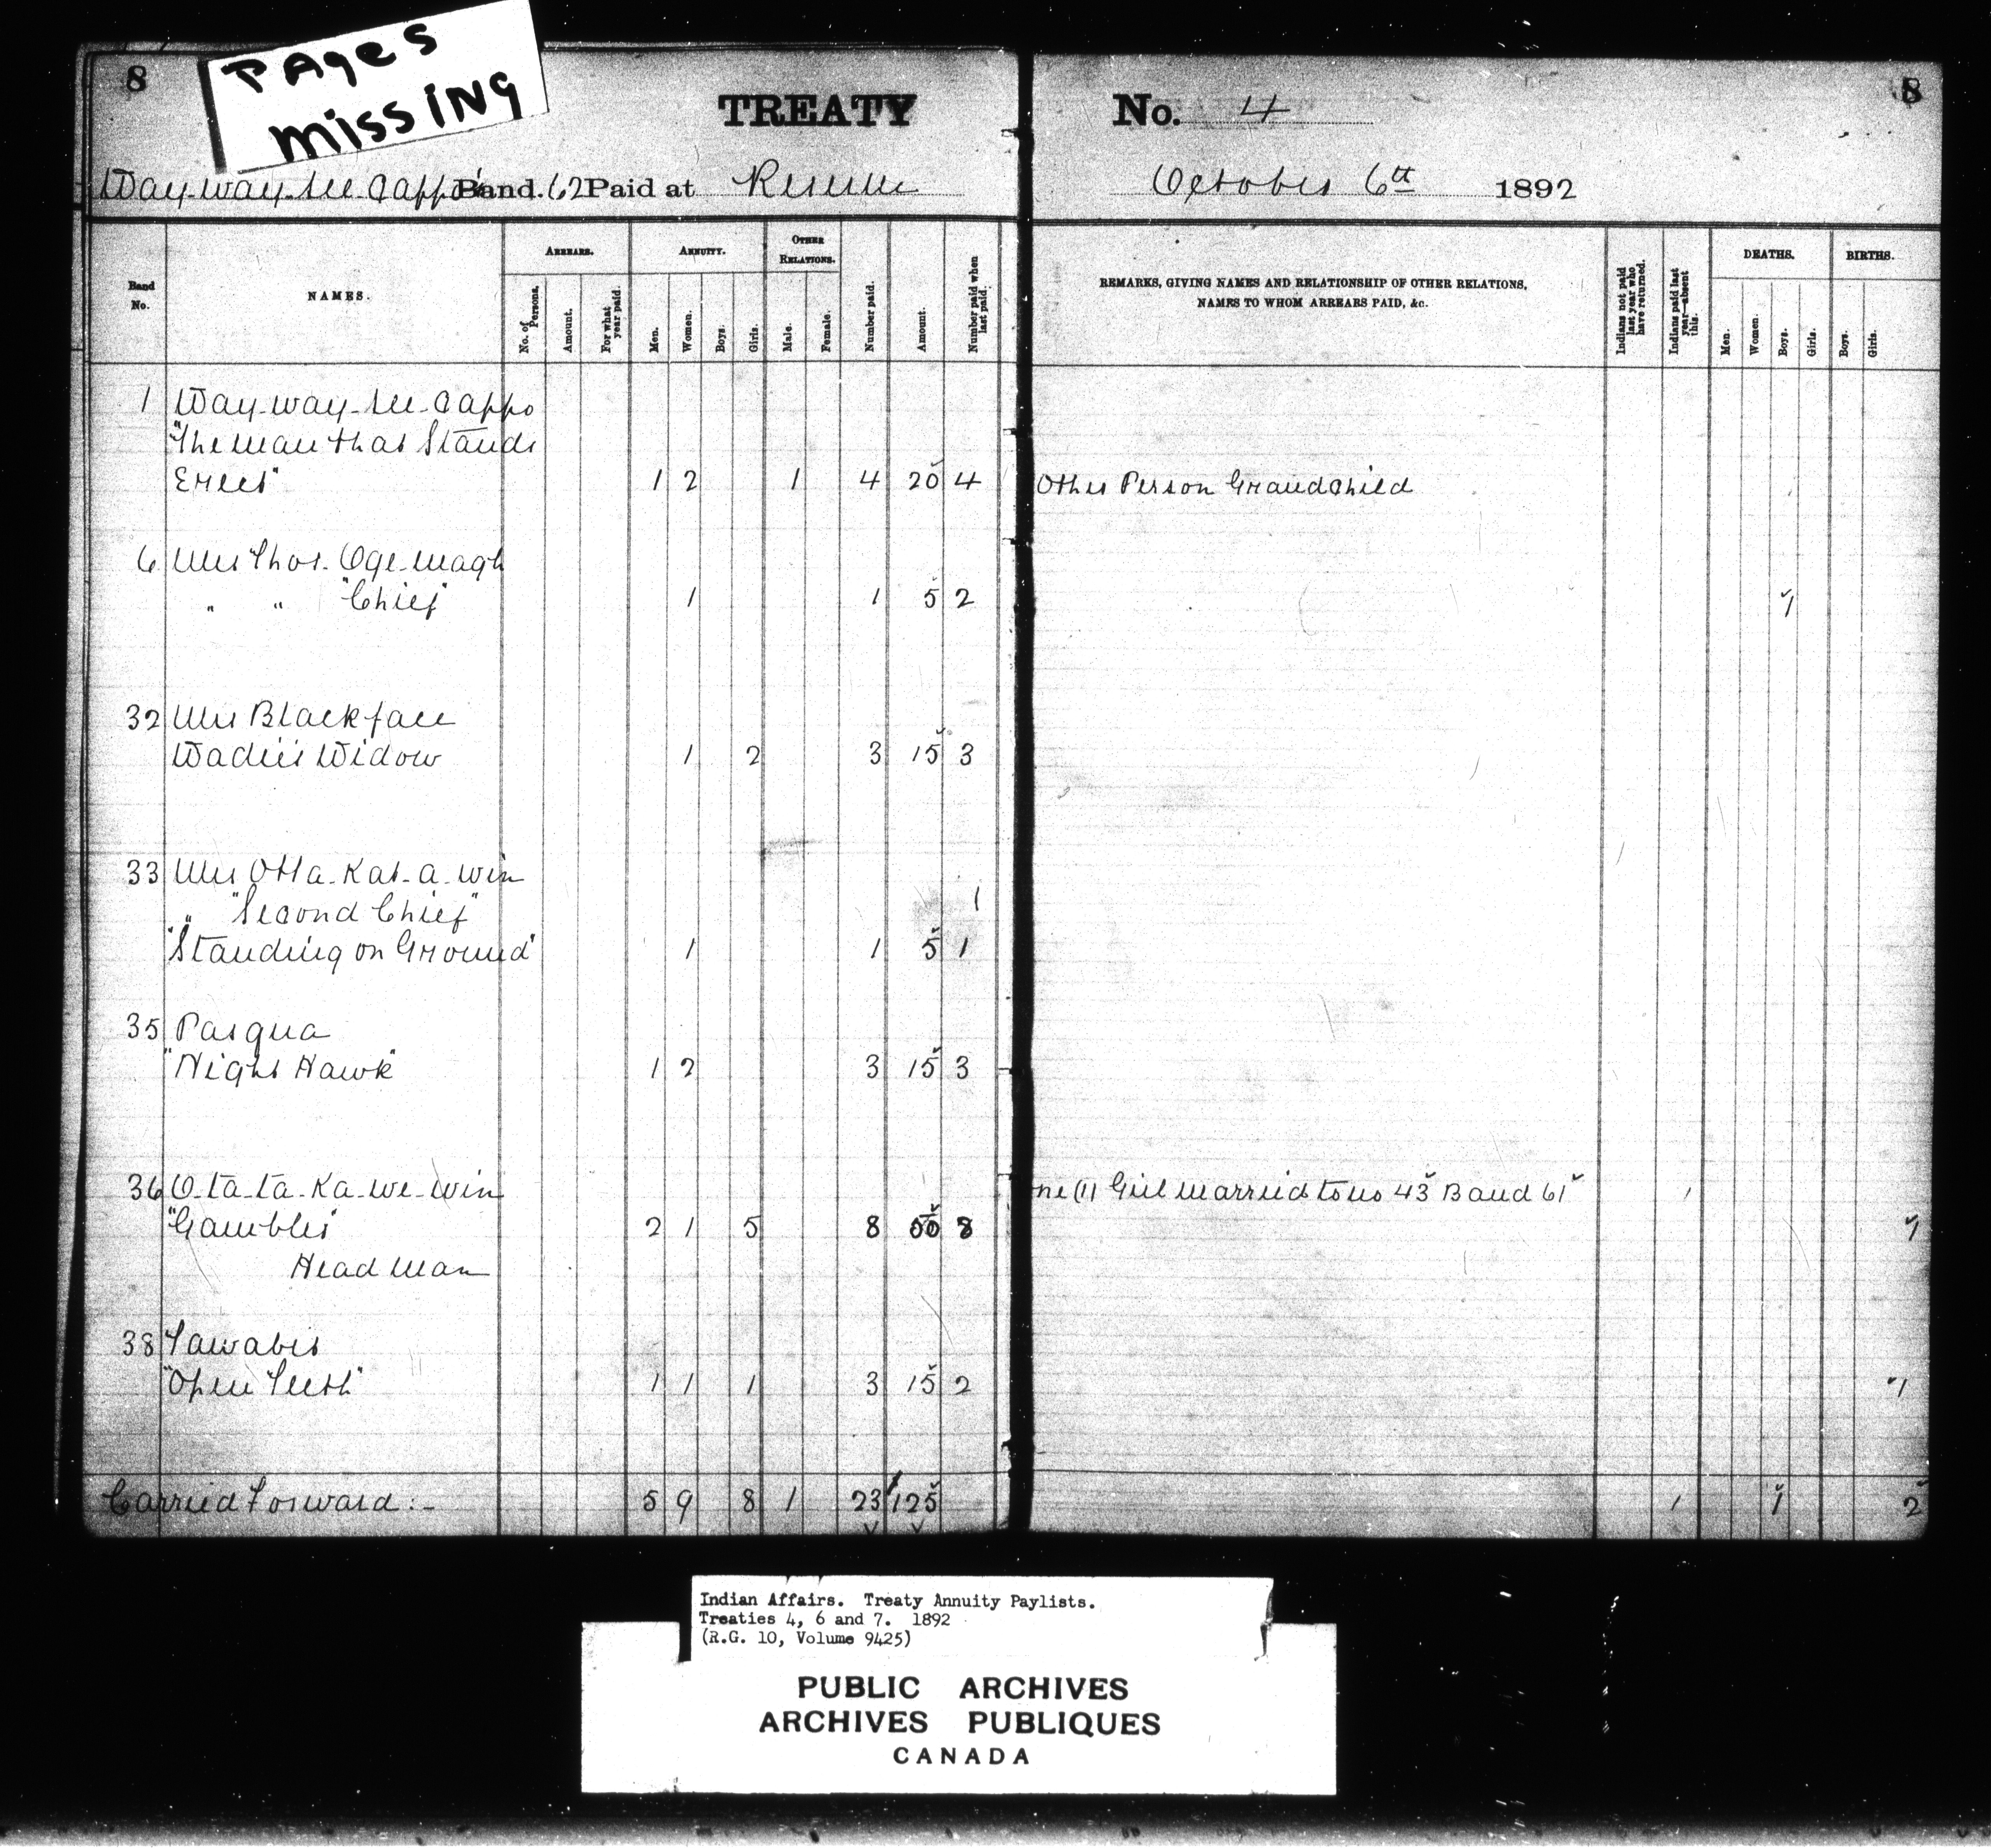 PAGES
MISSING
8
TREATY No. 4
8
Way-way-see-Cappo's Band. 62 Paid at Reserve October 6th 1892
Band No.
NAMES.
ARREARS.
No. of Persons.
Amount.
For what year paid.
ANNUITY.
Men.
Women.
Boys.
Girls.
OTHER RELATIONS.
Male.
Female.
Number paid.
Amount.
Number paid when last paid.
REMARKS, GIVING NAMES AND RELATIONSHIP OF OTHER RELATIONS,
NAMES TO WHOM ARREARS PAID, &c.
Indians not paid last year who have returned.
Indians paid last year—absent this.
DEATHS.
Men.
Women.
Boys.
Girls.
BIRTHS.
Boys.
Girls.
1 Way-way-see-Cappo
"The man that Stands
Erect" 1 2 1 4 20 4 Other Person Grandchild
6 Mrs Thos. Oge-magh
" " "Chief" 1 1 5 2 1
32 Mrs Blackface
Wadie's Widow 1 2 3 15 3
33 Mrs Otta-Kat-a-win
" "Second Chief" 1
"Standing on Ground" 1 1 5 1
35 Pasqua
"Night Hawk" 1 2 3 15 3
36 O-ta-ta-Ka-we-win ne (1) Girl married to no 43 Band 61 1
"Gambler" 2 1 5 8 8 1
Head Man
38 Tawabis
"Open Teeth" 1 1 1 3 15 2 1
Carried Forward:- 5 9 8 1 23 125 1 1 2
Indian Affairs. Treaty Annuity Paylists.
Treaties 4, 6 and 7. 1892
(R.G. 10, Volume 9425)
PUBLIC ARCHIVES
ARCHIVES PUBLIQUES
CANADA